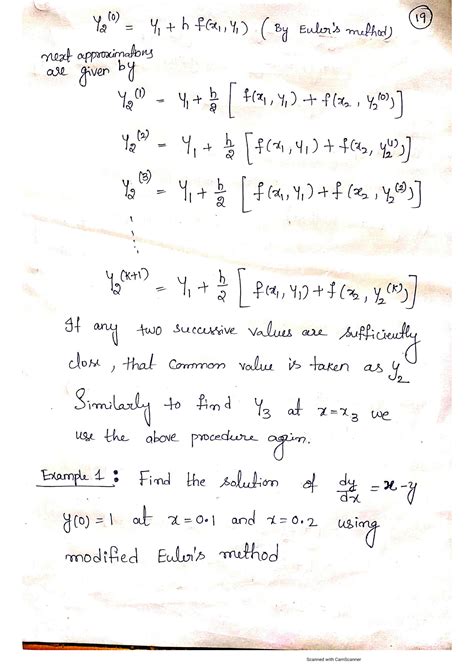 19
y₂⁽⁰⁾ = y₁ + h f(x₁, y₁) (By Euler's method)
next approximations
are given by
y₂⁽¹⁾ = y₁ + h/2 [f(x₁, y₁) + f(x₂, y₂⁽⁰⁾)]
y₂⁽²⁾ = y₁ + h/2 [f(x₁, y₁) + f(x₂, y₂⁽¹⁾)]
y₂⁽³⁾ = y₁ + h/2 [f(x₁, y₁) + f(x₂, y₂⁽²⁾)]
y₂⁽ᴷ⁺¹⁾ = y₁ + h/2 [f(x₁, y₁) + f(x₂, y₂⁽ᴷ⁾)]
If any two successive values are sufficiently
close, that common value is taken as y₂
Similarly to find y₃ at x=x₃ we
use the above procedure again.
Example 1: Find the solution of dy/dx = x-y
y(0)=1 at x=0.1 and x=0.2 using
modified Euler's method
Scanned with CamScanner